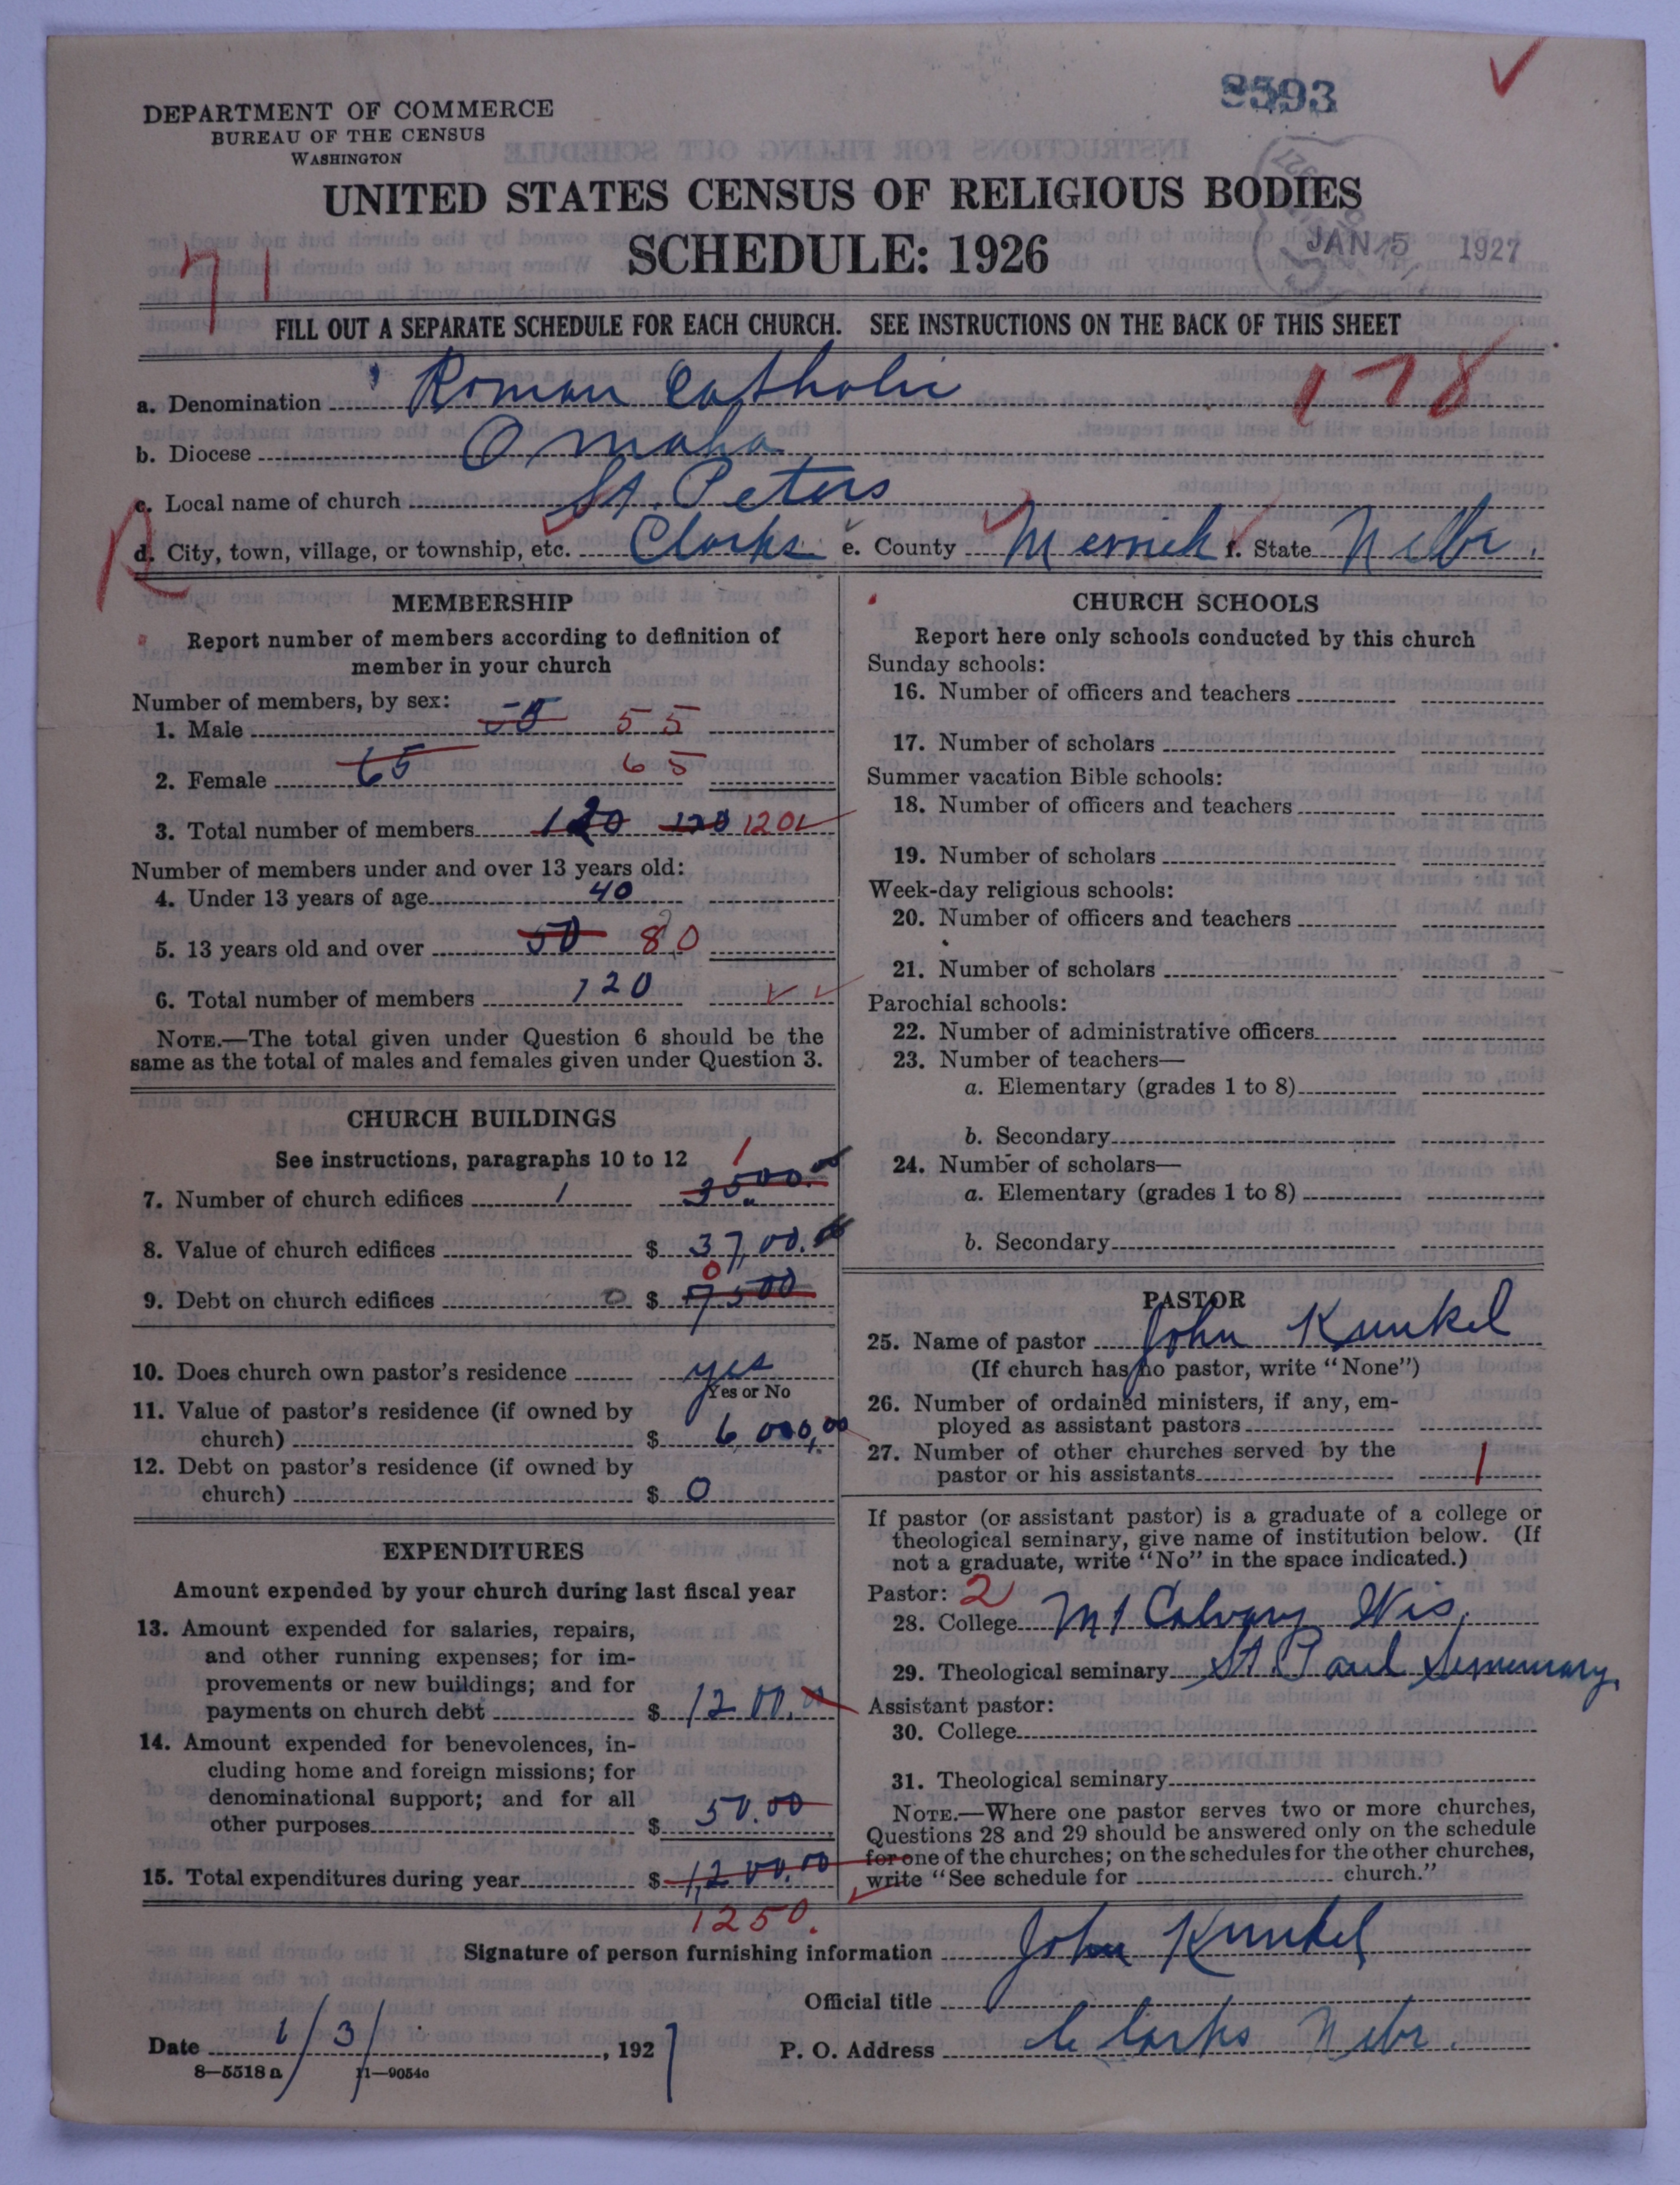 8593
DEPARTMENT OF COMMERCE
BUREAU OF THE CENSUS
WASHINGTON
UNITED STATES CENSUS OF RELIGIOUS BODIES
SCHEDULE: 1926
JAN 5 1927
71
FILL OUT A SEPARATE SCHEDULE FOR EACH CHURCH. SEE INSTRUCTIONS ON THE BACK OF THIS SHEET
178
a. Denomination Roman Catholic
b. Diocese Omaha
c. Local name of church St. Peters
d. City, town, village, or township, etc. Clarks e. County Merrick f. State Nebr.
MEMBERSHIP
Report number of members according to definition of
member in your church
Number of members, by sex:
1. Male 55 55
2. Female 65 65
3. Total number of members 120 120 120
Number of members under and over 13 years old:
4. Under 13 years of age 40
5. 13 years old and over 50 80
6. Total number of members 120
NOTE.—The total given under Question 6 should be the
same as the total of males and females given under Question 3.
CHURCH BUILDINGS
See instructions, paragraphs 10 to 12
7. Number of church edifices 1 3500.00 1
8. Value of church edifices $ 3700.00
9. Debt on church edifices 0 $ 7500 0
10. Does church own pastor's residence yes
Yes or No
11. Value of pastor's residence (if owned by
church) $ 6,000,00
12. Debt on pastor's residence (if owned by
church) $ 0
EXPENDITURES
Amount expended by your church during last fiscal year
13. Amount expended for salaries, repairs,
and other running expenses; for im-
provements or new buildings; and for
payments on church debt $ 1200.
14. Amount expended for benevolences, in-
cluding home and foreign missions; for
denominational support; and for all
other purposes $ 50.00
15. Total expenditures during year $ 1,200.00
1250.
CHURCH SCHOOLS
Report here only schools conducted by this church
Sunday schools:
16. Number of officers and teachers
17. Number of scholars
Summer vacation Bible schools:
18. Number of officers and teachers
19. Number of scholars
Week-day religious schools:
20. Number of officers and teachers
21. Number of scholars
Parochial schools:
22. Number of administrative officers
23. Number of teachers—
a. Elementary (grades 1 to 8)
b. Secondary
24. Number of scholars—
a. Elementary (grades 1 to 8)
b. Secondary
PASTOR
25. Name of pastor John Kunkel
(If church has no pastor, write "None")
26. Number of ordained ministers, if any, em-
ployed as assistant pastors
27. Number of other churches served by the
pastor or his assistants 1
If pastor (or assistant pastor) is a graduate of a college or
theological seminary, give name of institution below. (If
not a graduate, write "No" in the space indicated.)
Pastor: 2
28. College Mt Calvary Wis.
29. Theological seminary St Paul Semmenary
Assistant pastor:
30. College
31. Theological seminary
NOTE.—Where one pastor serves two or more churches,
Questions 28 and 29 should be answered only on the schedule
for one of the churches; on the schedules for the other churches,
write "See schedule for church."
Signature of person furnishing information John Kunkel
Official title
Date 1/3/, 1927 P. O. Address Clarks Nebr.
8-5518a 11-9054c